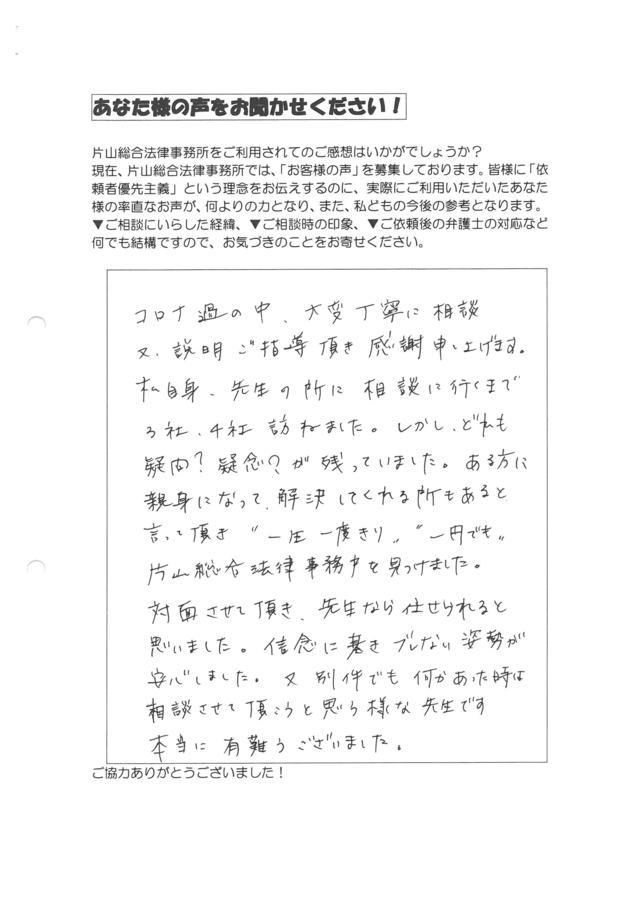 あなた様の声をお聞かせください！
片山総合法律事務所をご利用されてのご感想はいかがでしょうか？
現在、片山総合法律事務所では、「お客様の声」を募集しております。皆様に「依
頼者優先主義」という理念をお伝えするのに、実際にご利用いただいたあなた
様の率直なお声が、何よりの力となり、また、私どもの今後の参考となります。
▼ご相談にいらした経緯、▼ご相談時の印象、▼ご依頼後の弁護士の対応など
何でも結構ですので、お気づきのことをお寄せください。
コロナ過の中、大変丁寧に相談
又、説明ご指導頂き感謝申し上げます。
私自身、先生の所に相談に行くまで
3社、4社訪ねました。しかし、どれも
疑問？疑念？が残っていました。ある方に
親身になって、解決してくれる所もあると
言って頂き〝一生一度きり〟〝一円でも〟
片山総合法律事務所を見つけました。
対面させて頂き、先生なら任せられると
思いました。信念に基きブレない姿勢が
安心しました。又別件でも何かあった時は
相談させて頂こうと思う様な先生です
本当に有難うございました。
ご協力ありがとうございました！